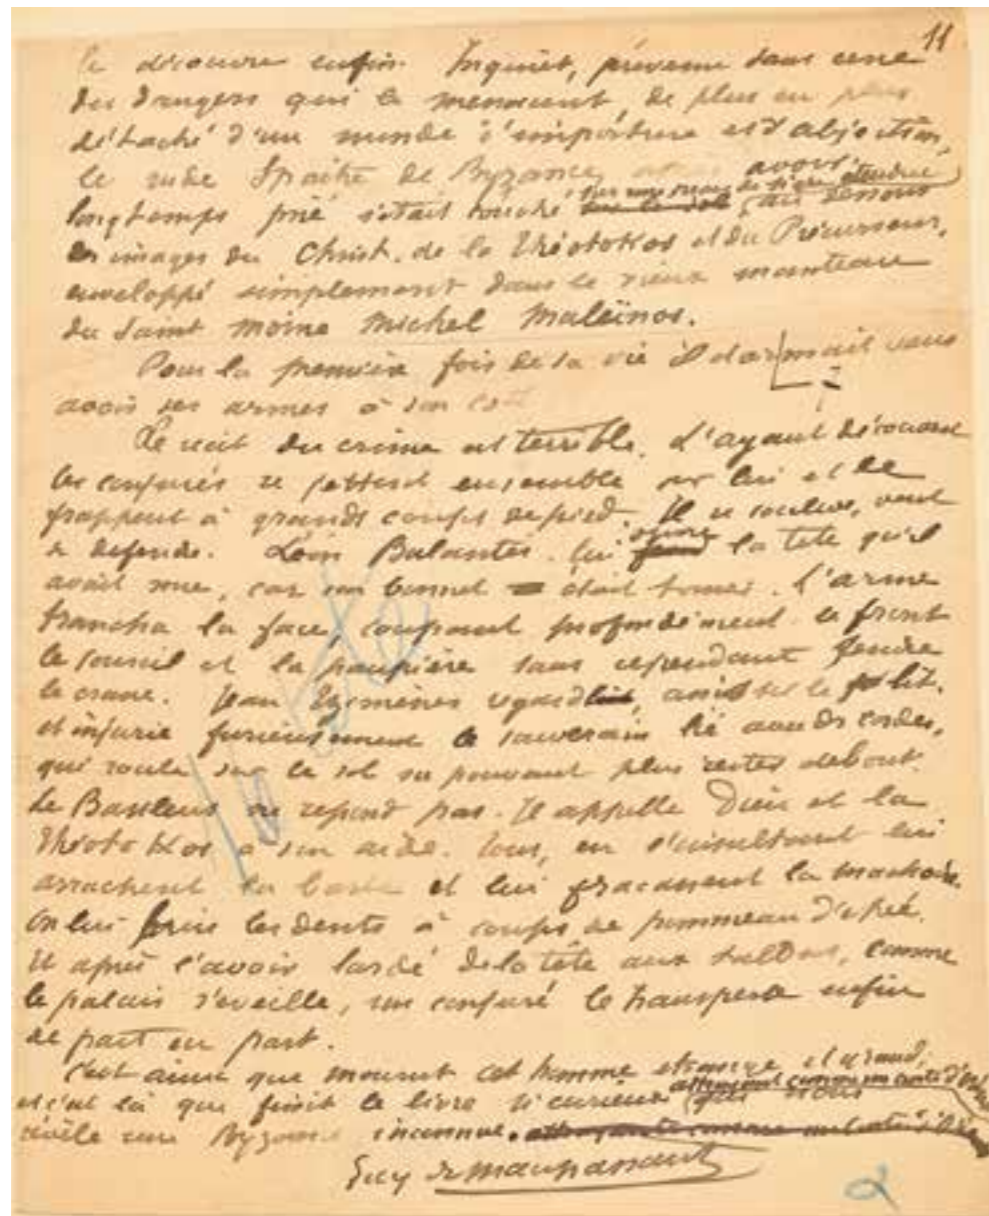 11
le découvre enfin. Inquiet, prévenu sans cesse
des dangers qui le menacent, de plus en plus
détaché d'un monde d'imposture et d'abjection,
le rude Spartiate de Byzance, après avoir
longtemps prié s'était couché sur une peau de tigre étendue sur le sol au dessous
des images du Christ, de la Théotokos et du Précurseur,
enveloppé simplement dans le vieux manteau
du saint moine Michel Maleïnos.
Pour la première fois de sa vie il dormait sans
avoir ses armes à son côté
Le récit du crime est terrible. L'ayant découvert
les conjurés se jettent ensemble sur lui et le
frappent à grands coups de pied. Il se soulève, veut
se défendre. Léon Balantès lui la tête qu'il
avait nue, car son bonnet était tombé. L'arme
trancha la face, coupant profondément le front
le sourcil et la paupière sans cependant fendre
le crane. Jean Tzimiscès regardait, assis sur le lit.
et injurie furieusement le souverain lié avec des cordes,
qui roule sur le sol ne pouvant plus rester debout.
Le Basileus ne répond pas. Il appelle Dieu et la
Théotokos à son aide. Tous, en l'insultant lui
arrachent la barbe et lui fracassent la machoire.
On lui brise les dents à coups de pommeau d'épée.
Et après l'avoir lardé de la tête aux talons, comme
le palais s'éveille, un conjuré le transperce enfin
de part en part.
C'est ainsi que mourut cet homme étrange et grand,
et c'est là que finit le livre si curieux attrayant comme un conte d' qui nous
révèle une Byzance inconnue. attrayante comme un conte
Guy de Maupassant